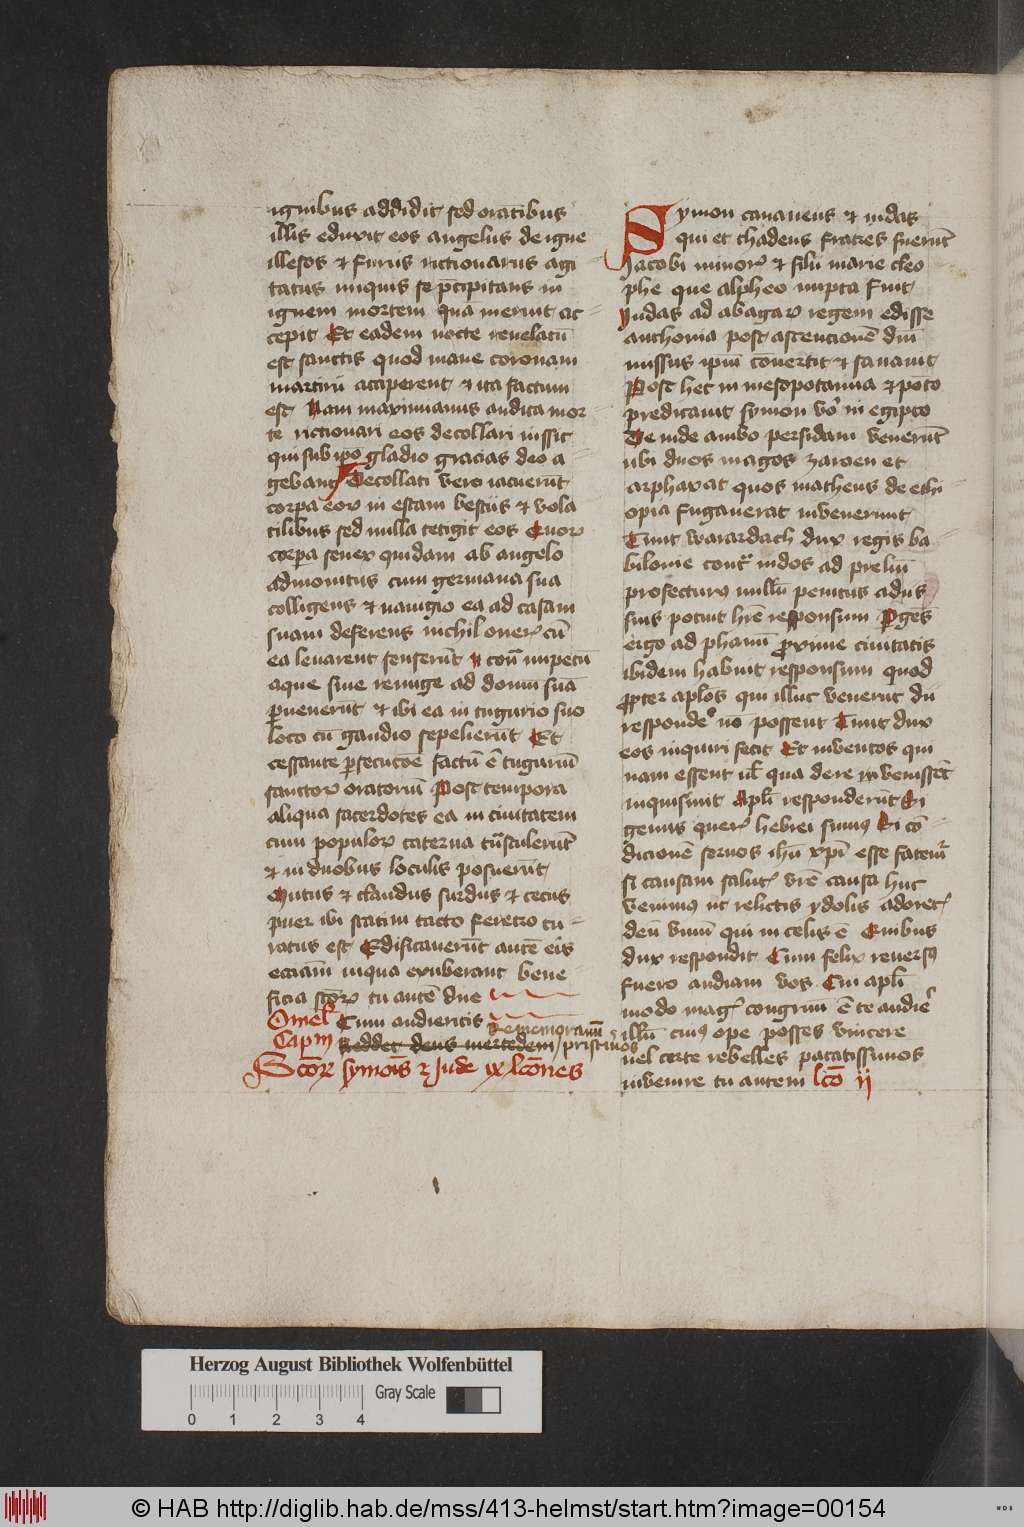 ignibus addidit sed oratibus
illis eduxit eos angelus de igne
illesos & furiis rictionarius agi
tatus iniquis se pcipitans in
ignem mortem quā meruit ac-
cepit Et eadem nocte reuelatū
est sanctis quod mane coronam
martirij acciperent & ita factum
est Nam maximianus audita mor-
te rictionari eos decollari iussit
qui sub ipo gladio gracias deo a-
gebant Decollati vero iacuerūt
corpa eoꝝ in escam bestiis & vola
tilibus sed nulla tetigit eos Quoꝝ
corpa senex quidam ab angelo
admonitus cum germana sua
colligens & nauigio ea ad casam
suam deferens nichil oneꝝ cū
ea leuarent senserūt impetū
aque sine remige ad domū suā
puenerūt & ibi ea in tugurio suo
loco cū gaudio sepelierūt Et
cessante psecucōe factū ē tuguriū
sanctoꝝ oratoriū Post tempora
aliqua sacerdotes ea in ciuitatem
cum populoꝝ caterua tnstulerūt
& in duobus loculis posuerūt
Mutus & claudus surdus & cecus
puer ibi statim tacto feretro cu-
ratus est Edificauerūt autē eis
ecciam in qua exuberant bene-
ficia scoꝝ tu autē dne
Omel Cum audieritis Rememoramī
Capm Reddet deus mercedem pristinos
Scoꝝ symōis & Jude ix lcōnes
Symon cananeus & iudas
qui et thadeus fratres fuerūt
Jacobi minoꝝ & filii marie cleo
phe que alpheo nupta fuit
Judas ad abagaꝝ regem edisse
anthonia post ascencionē dnī
missus ipm conuertit & sanauit
Post hec in mesopotamia & pōto
predicauit symon vo in egipto
De inde ambo persidam venerūt
ubi duos magos zaroen et
arphaxat quos matheus de ethi-
opia fugauerat inuenerunt
Tunc warardach dux regis ba-
bilonie contᵃ indos ad preliū
profecturꝰ nullū penitus a diis
suis potuit hr̄e responsum Pges
ergo ad phanū proxime ciuitatis
ibidem habuit responsum quod
propter aplos qui illuc venerūt dii
respondeꝰ nō possent Tunc dux
eos inquiri fecit Et inuentos qui
nam essent ul qua de re venissēt
inquisiuit Apli responderūt Si
genus queꝝ hebrei sumꝰ Si cō-
dicionē seruos ihū xp̄i esse fatemᷣ
si causam salutꝭ vrē causa huc
venimꝰ ut relictis ydolis adoretꝭ
deū vnū qui in celis ē Quibus
dux respondit Cum felix reuersꝰ
fuero audiam vos Cui apli
modo magꝭ congruū ē te audiē
illū cuiꝰ ope posses vincere
uel certe rebelles pacatissimos
inuenire tu autem lcō ij
Herzog August Bibliothek Wolfenbüttel
Gray Scale
0 1 2 3 4
© HAB http://diglib.hab.de/mss/413-helmst/start.htm?image=00154